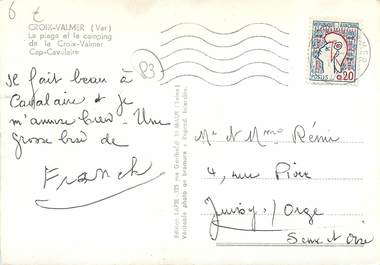 CROIX-VALMER (Var)
La plage et le camping
de la Croix-Valmer
Cap-Cavalaire
83
REPUBLIQUE FRANCAISE
POSTES 0,20
Il fait beau à
Cavalaire et je
m'amuse bien. Une
grosse bise de
Franck
Edition LAPIE
Véritable photo au bromure - Reprod. interdite.
Mr et Mme Rémi
4, rue
Juvisy/Orge
Seine et Oise